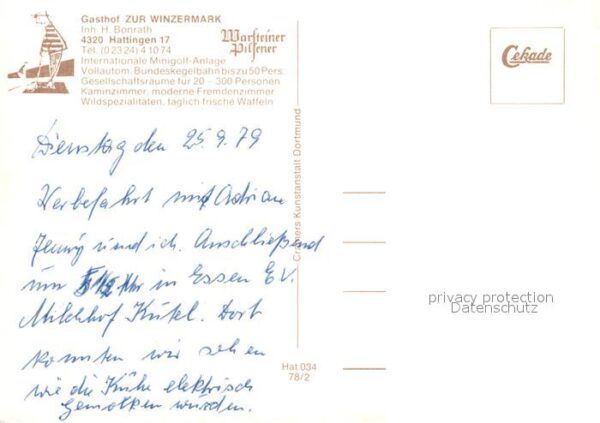 Gasthof ZUR WINZERMARK
Inh. H. Bonrath
4320 Hattingen 17
Tel. (0 23 24) 4 10 74
Internationale Minigolf-Anlage
Vollautom. Bundeskegelbahn bis zu 50 Pers.
Gesellschaftsräume für 20 - 300 Personen
Kaminzimmer, moderne Fremdenzimmer
Wildspezialitäten, täglich frische Waffeln
Warsteiner
Pilsener
Cekade
Dienstag den 25.9.79
Werbefahrt mit Adrian
Jenny und ich. Anschließend
um 1/2 Uhr in Essen E.V.
Milchhof Kükel. Dort
konnten wir sehen
wie die Kühe elektrisch
gemolken wurden.
Cramers Kunstanstalt Dortmund
Hat 034
78/2
privacy protection
Datenschutz